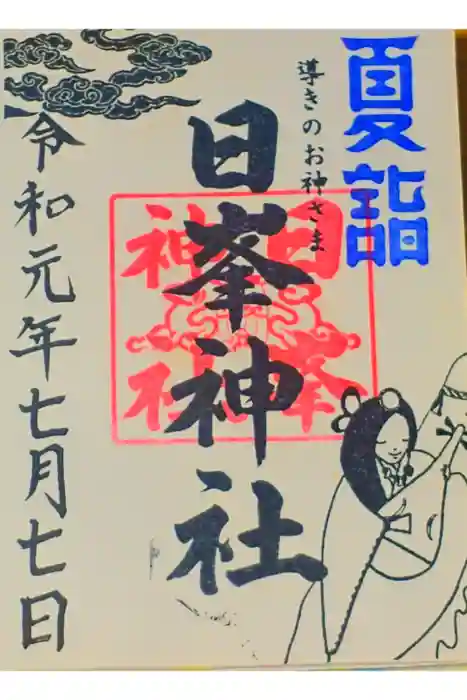 夏詣
導きのお神さま
日峯神社
日峯
神社
令和元年七月七日